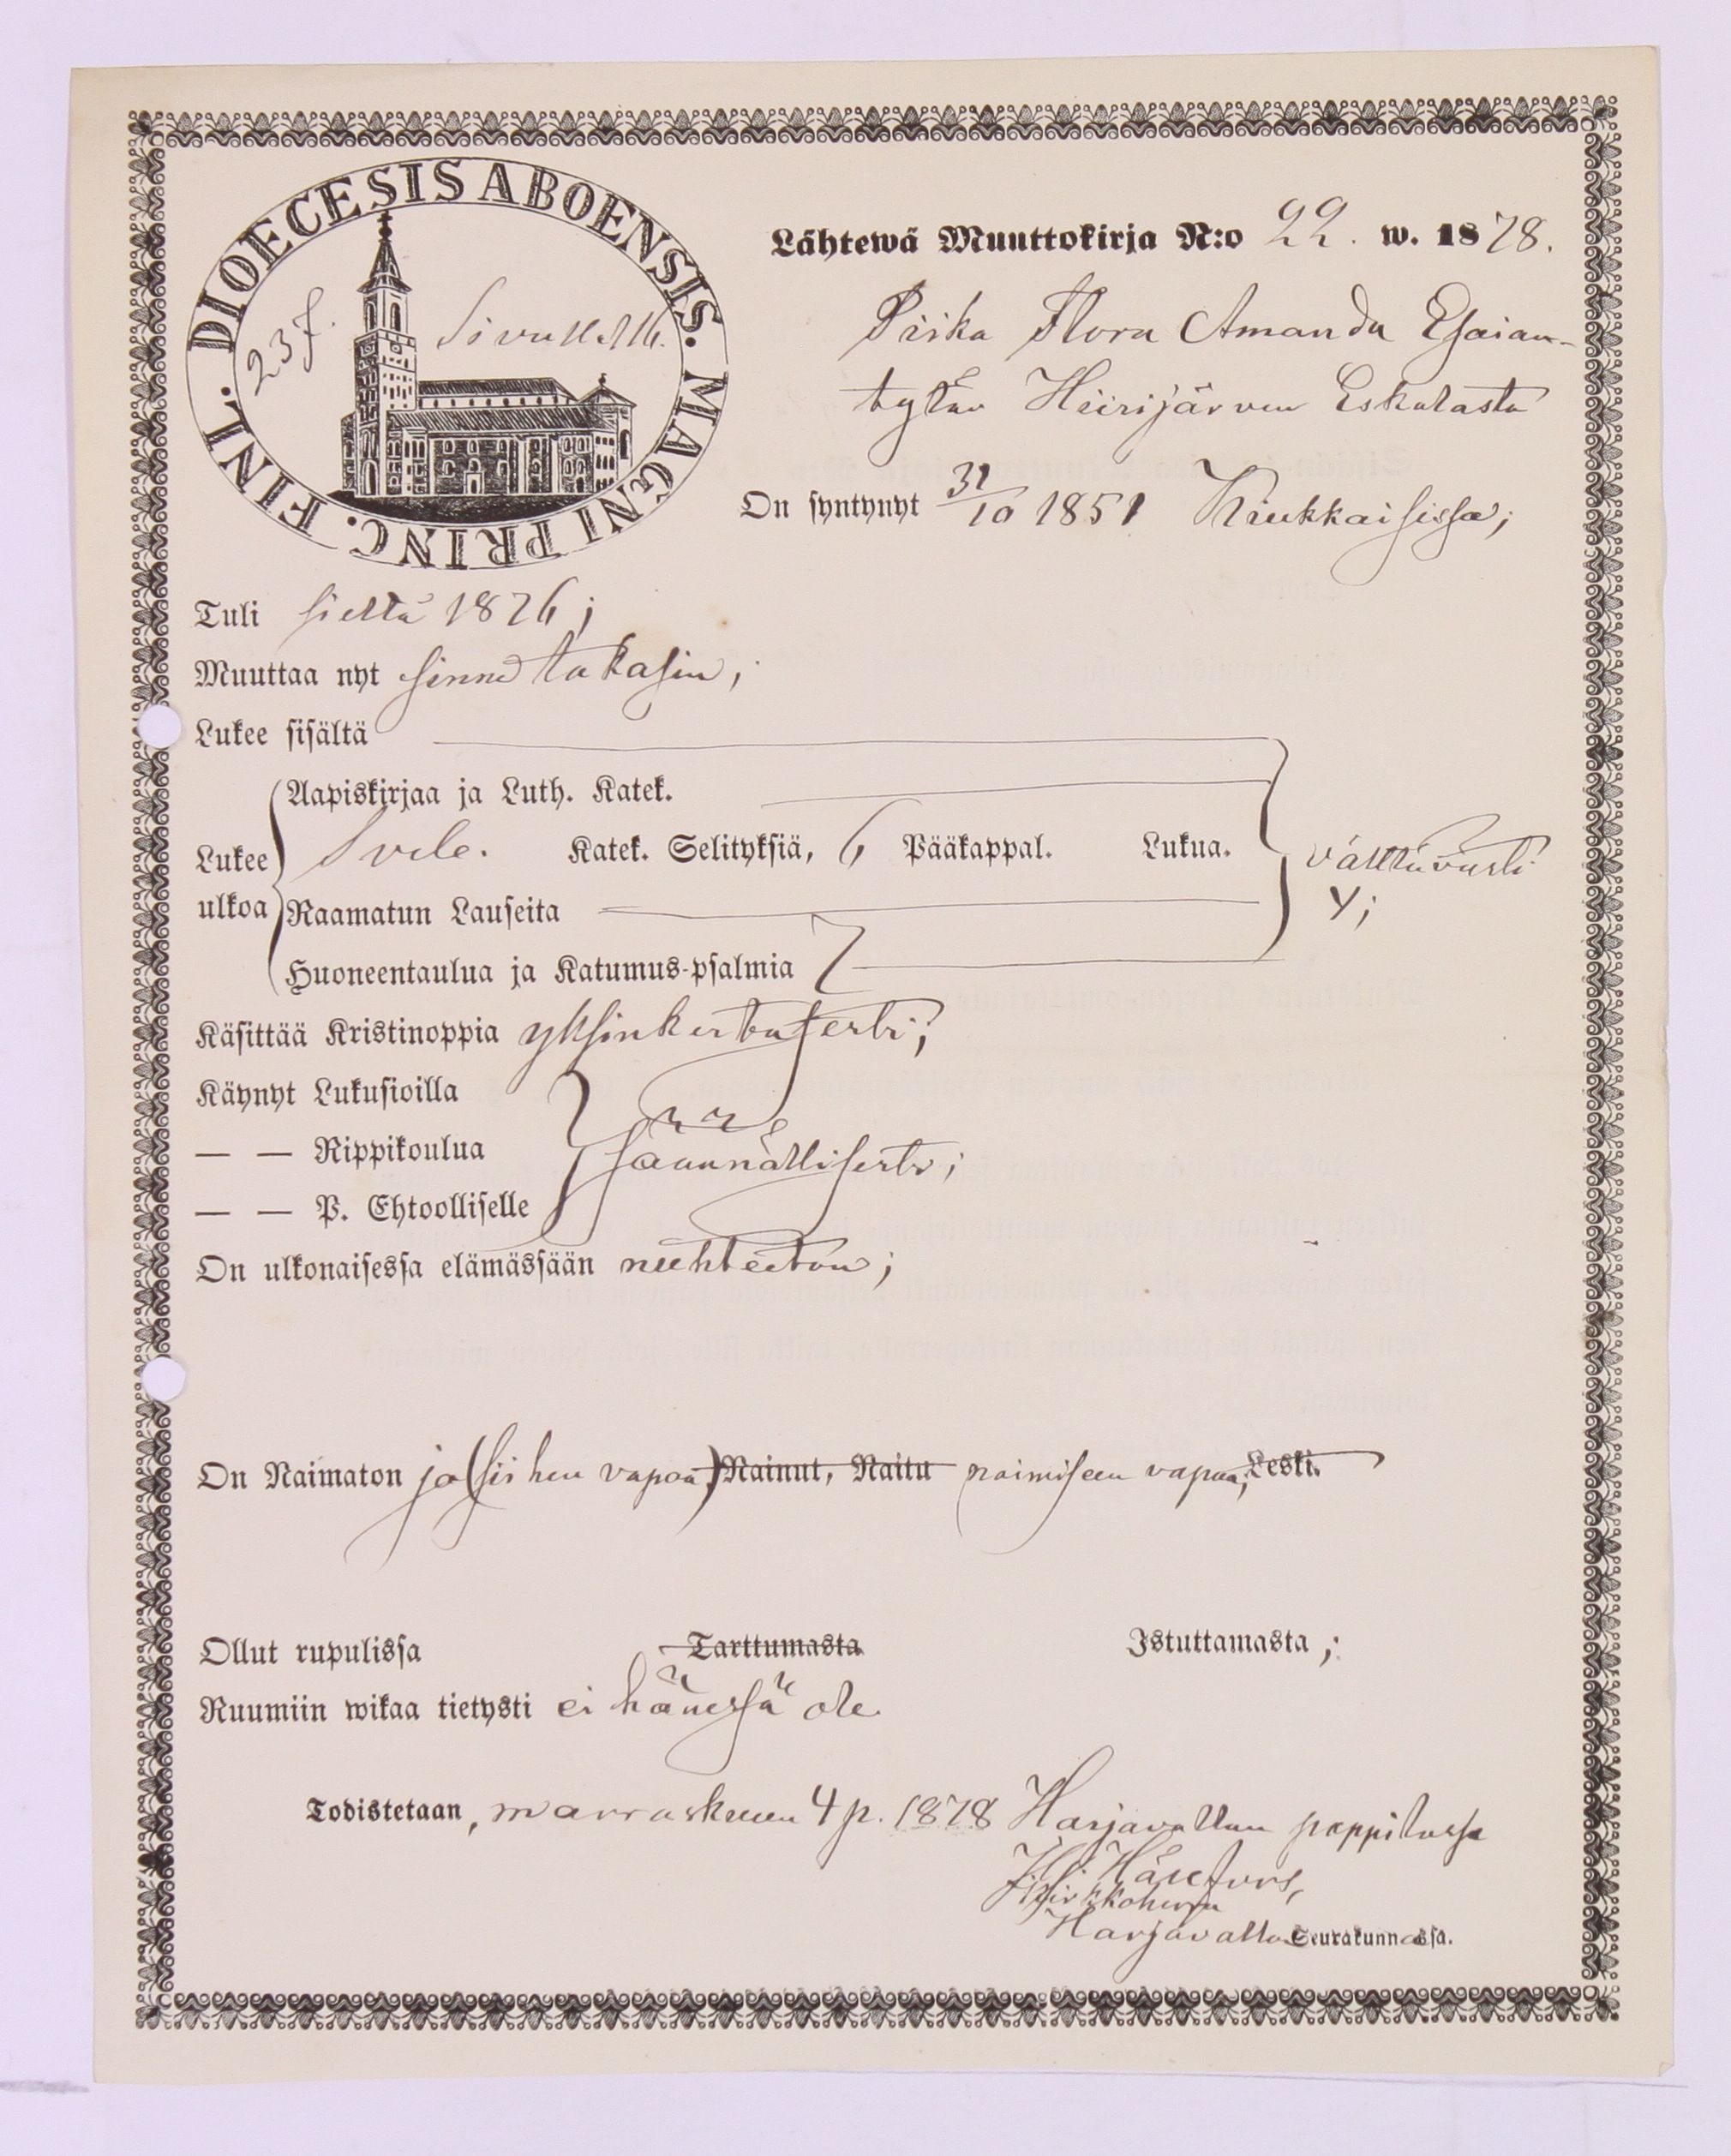 DIOECESIS ABOENSIS. MAGNI PRINC. FINL.
237. Sivullalle.
Lähtewä Muuttokirja N:o 22. w. 1878.
Piika Flora Amanda Esaian-
tytär Hiirijärven Eskolasta
On syntynyt 31/10 1851 Kiukkaisissa;
Tuli sieltä 1876;
Muuttaa nyt sinne takasin;
Lukee sisältä
Aapiskirjaa ja Luth. Katek.
Lukee ulkoa Svel. Katek. Selityksiä, 6 Pääkappal. Lukua. välttävästi
Raamatun Lauseita y;
Huoneentaulua ja Katumus-psalmia
Käsittää Kristinoppia yksinkertasesti;
Käynyt Lukusioilla
— — Rippikoulua säännöllisesti;
— — P. Ehtoolliselle
On ulkonaisessa elämässään nuhteeton;
On Naimaton ja (siihen vapaa,) Nainut, Naitu naimiseen vapaa, Leski.
Ollut rupulissa Tarttumasta Istuttamasta;
Ruumiin wikaa tietysti ei hänessä ole.
Todistetaan, marraskuun 4 p. 1878 Harjavallan pappilassa
Kirkkoherra
Harjavalla Seurakunnassa.